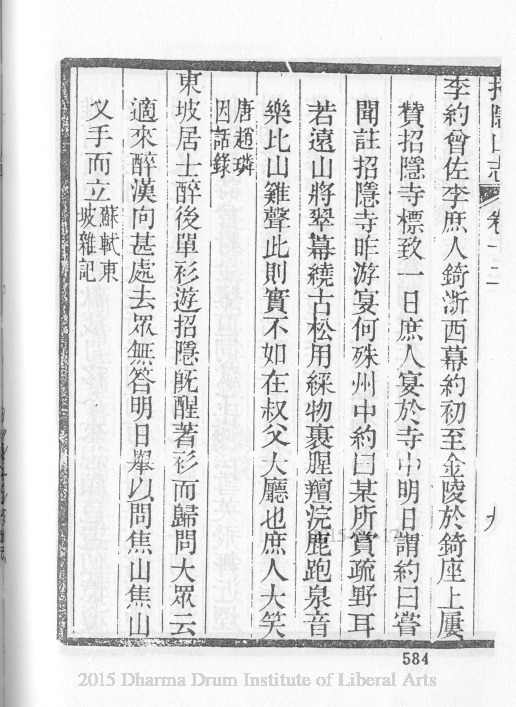 招隱山志 卷十二 九
李約曾佐李庶人錡浙西幕約初至金陵於錡座上屢
贊招隱寺標致一日庶人宴於寺中明日謂約曰嘗
聞詿招隱寺昨游宴何殊州中約曰某所賞疏野耳
若遠山將翠幕繞古松用綵物裹腥羶浣鹿跑泉音
樂比山雞聲此則實不如在叔父大廳也庶人大笑
唐趙璘
因話錄
東坡居士醉後單衫遊招隱既醒著衫而歸問大眾云
適來醉漢向甚處去眾無答明日舉以問焦山焦山
叉手而立蘇軾東
坡雜記
584
2015 Dharma Drum Institute of Liberal Arts